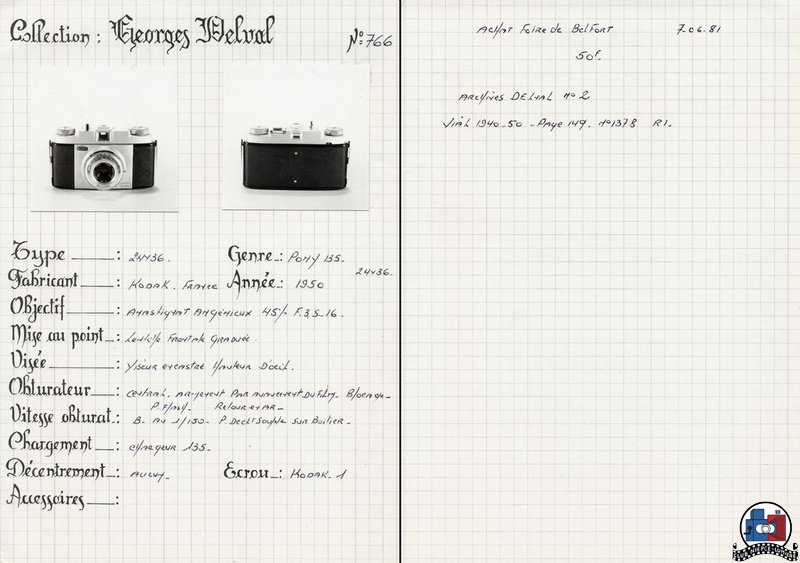 Collection : Georges Delval
No 766
Type : 24x36.
Genre : Pony 135.
24x36.
Fabricant : Kodak. France
Année : 1950
Objectif : Anastigmat Angénieux 45/ F.3,5-16.
Mise au point : Lentille Frontale Graduée.
Visée : Viseur excentré Hauteur D'oeil.
Obturateur : central. Armement Par avancement Du Film. Blocage-
Retour en AR-
Vitesse obturat : B. Au 1/150- P. Declt Souple sur Boitier-
Chargement : chargeur 135-
Décentrement : Aucun.
Ecrou : Kodak. 1
Accessoires :
Achat Foire de Belfort 7.06.81
50f.
Archives Delval no 2
Vial 1940-50 - Page 149. no 1378 R1.